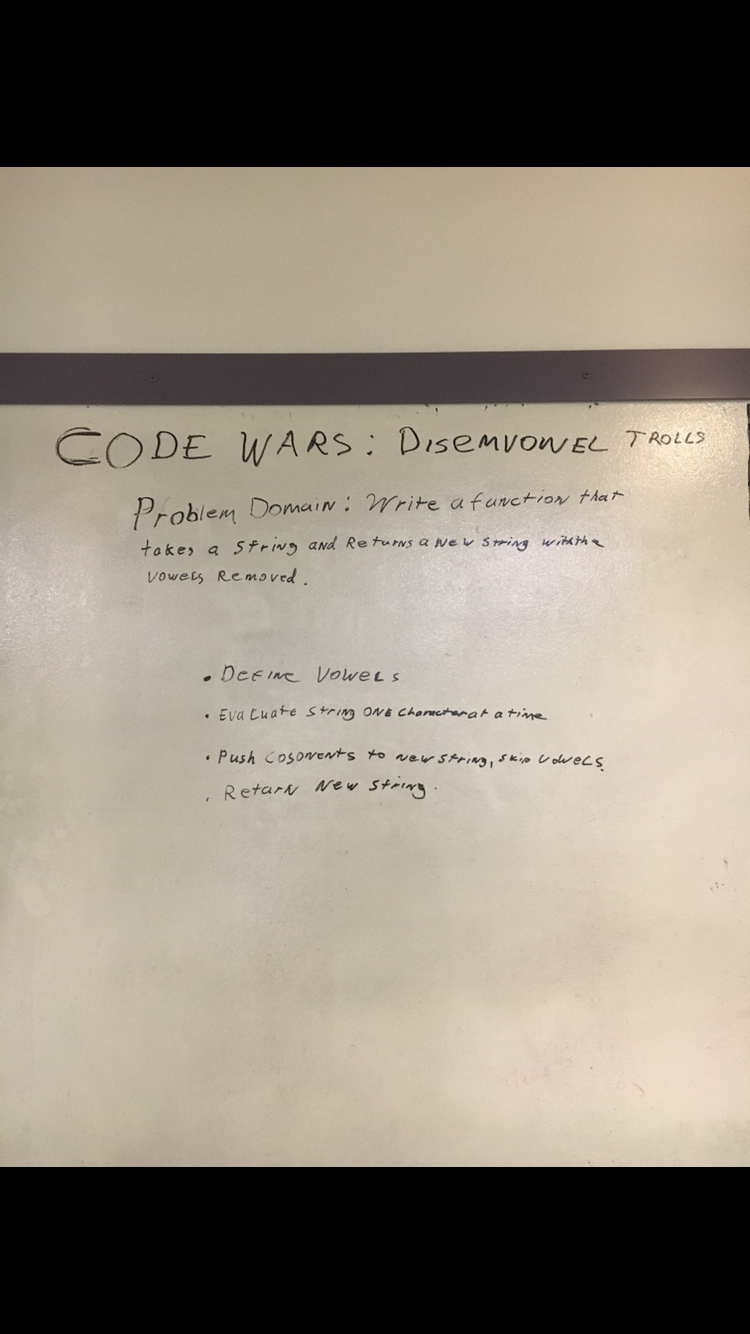 CODE WARS: DISEMVOWEL TROLLS
Problem Domain: Write a function that
takes a string and Returns a New string with the
vowels Removed.
• Define Vowels
• Evaluate string ONE character at a time
• Push cosonents to new string, skip vowels.
. Return New string.